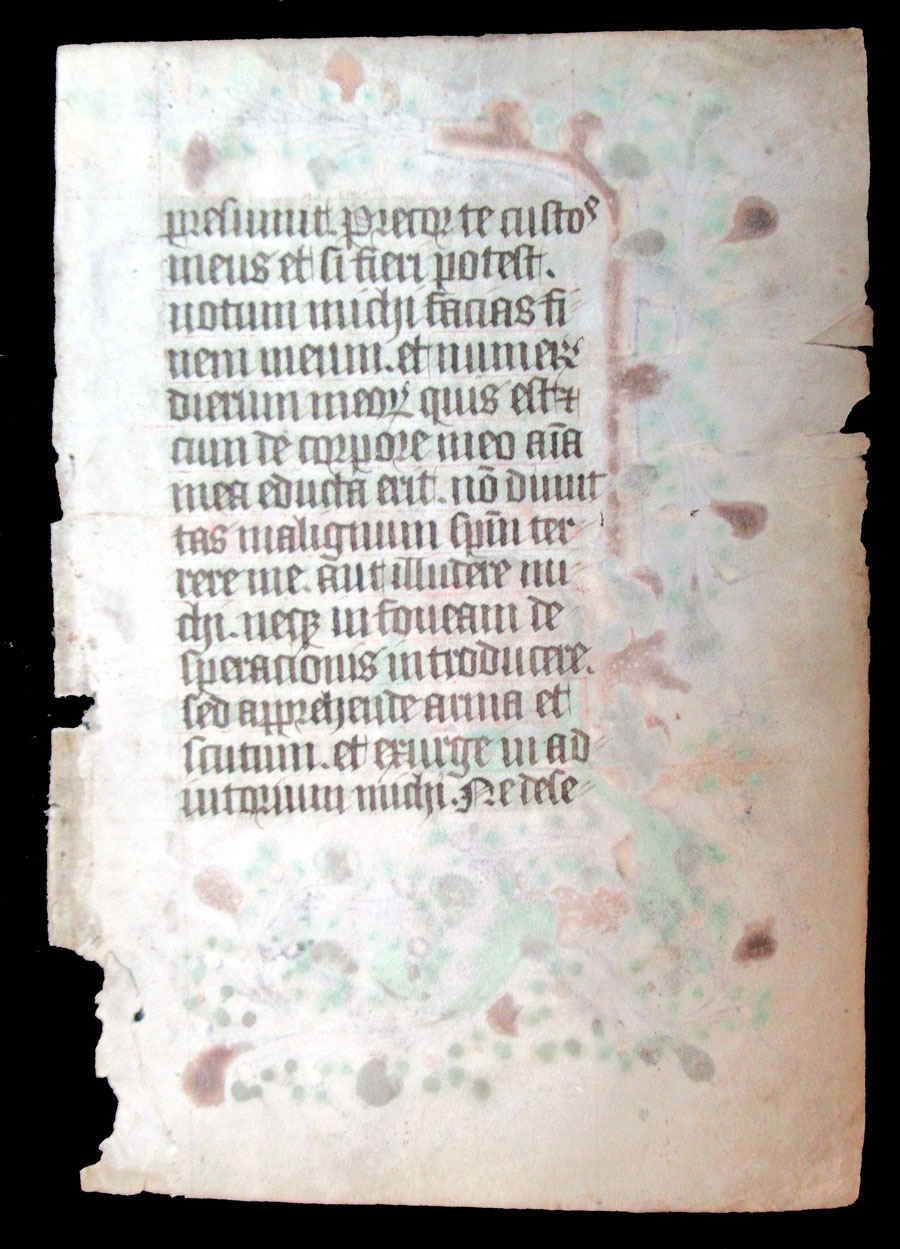 presumit. Precor te custos
meus et si fieri potest.
uotum michi facias fi
nem meum. et numerū
dierum meoꝝ quis est ⁊
cum de corpore meo aīa
mea educta erit. nō dimit
tas malignum spm̄ ter⸗
rere me. aut illudere mi⸗
chi. neqꝫ in foueam de
speracionis introducere.
sed apprehende arma et
scutum. et exurge in ad⸗
iutorium michi. Ne dese⸗